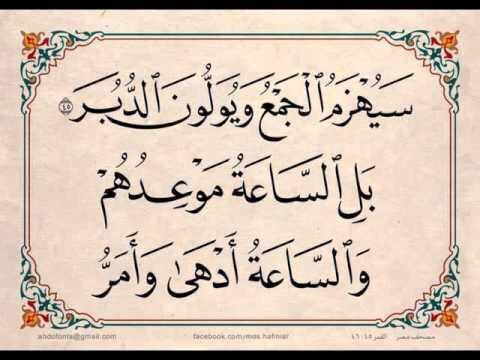 سَيُهْزَمُ ٱلْجَمْعُ وَيُوَلُّونَ ٱلدُّبُرَ ٤٥
بَلِ ٱلسَّاعَةُ مَوْعِدُهُمْ
وَٱلسَّاعَةُ أَدْهَىٰ وَأَمَرُّ
abdofonts@gmail.com facebook.com/mos.hafniai مصحف مصر القمر ٤٥-٤٦